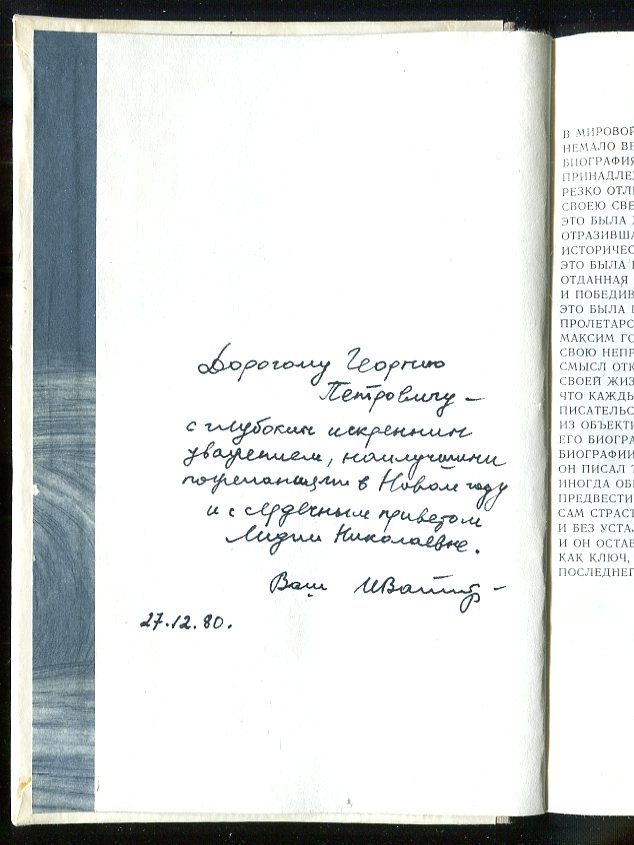 Дорогому Георгию
Петровичу —
с глубоким искренним
уважением, наилучшими
пожеланиями в Новом году
и с сердечным приветом
Лидии Николаевне.
Ваш
27.12.80.
В МИРОВОЙ
НЕМАЛО ВЕ
БИОГРАФИЯ
ПРИНАДЛЕЖ
РЕЗКО ОТЛИ
СВОЕЮ СВЕ
ЭТО БЫЛА
ОТРАЗИВША
ИСТОРИЧЕС
ЭТО БЫЛА
ОТДАННАЯ
И ПОБЕДИВ
ЭТО БЫЛА
ПРОЛЕТАРС
МАКСИМ ГО
СВОЮ НЕПР
СМЫСЛ ОТК
СВОЕЙ ЖИЗ
ЧТО КАЖДЫ
ПИСАТЕЛЬС
ИЗ ОБЪЕКТИ
ЕГО БИОГРА
БИОГРАФИИ
ОН ПИСАЛ Т
ИНОГДА ОБ
ПРЕДВЕСТИ
САМ СТРАСТ
И БЕЗ УСТА
И ОН ОСТАВ
КАК КЛЮЧ,
ПОСЛЕДНЕГ